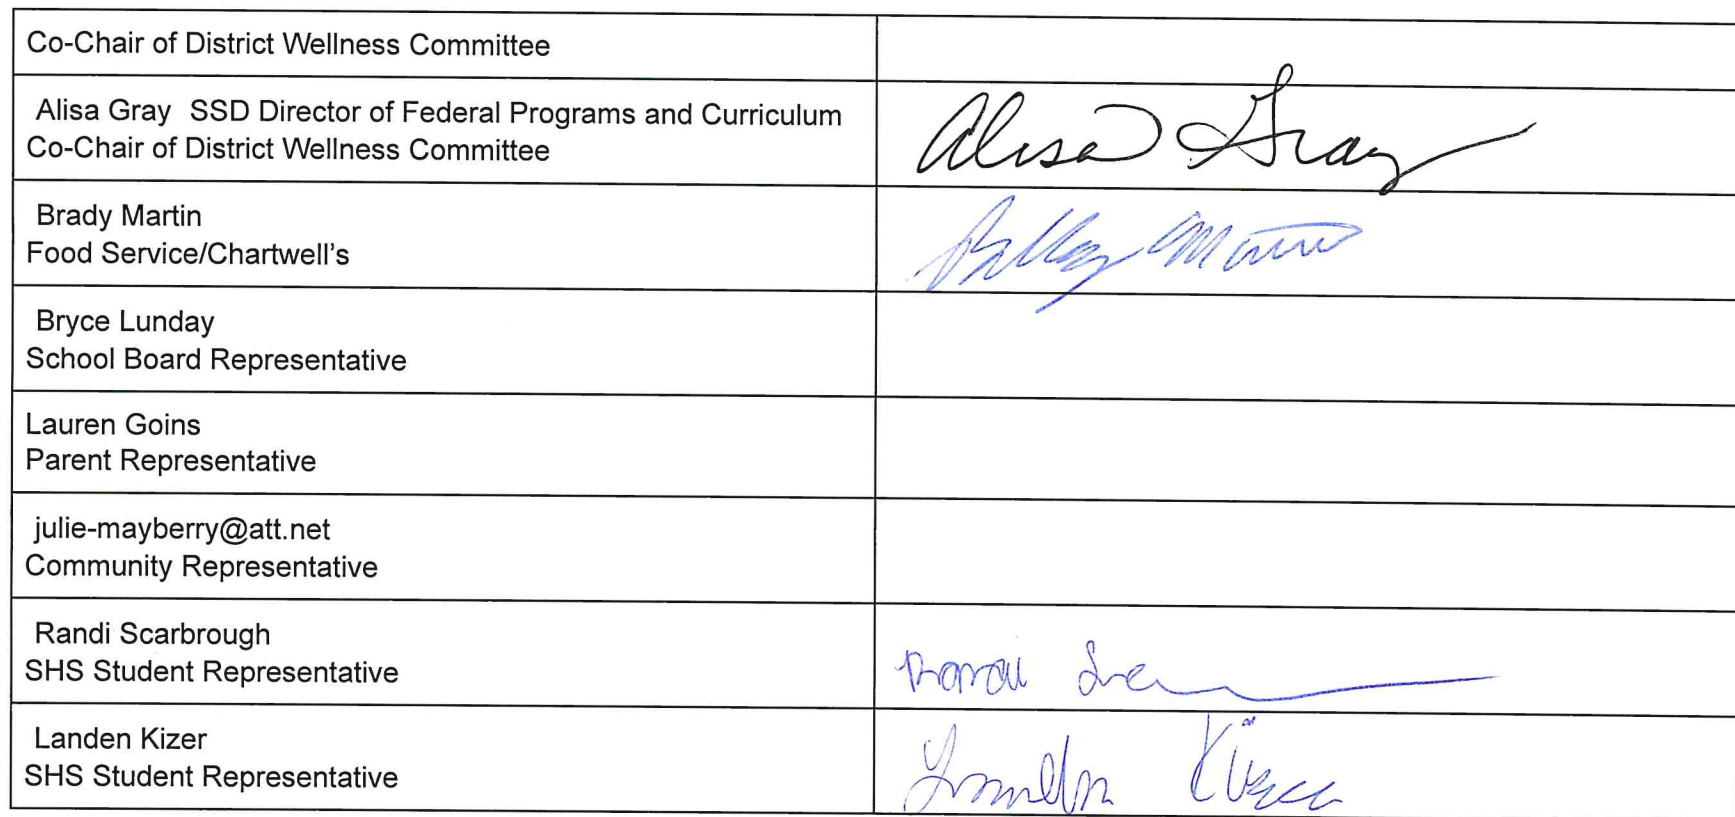 Co-Chair of District Wellness Committee
Alisa Gray SSD Director of Federal Programs and Curriculum
Co-Chair of District Wellness Committee
Alisa Gray
Brady Martin
Food Service/Chartwell's
Martin
Bryce Lunday
School Board Representative
Lauren Goins
Parent Representative
julie-mayberry@att.net
Community Representative
Randi Scarbrough
SHS Student Representative
Randi
Landen Kizer
SHS Student Representative
Landen Kizer